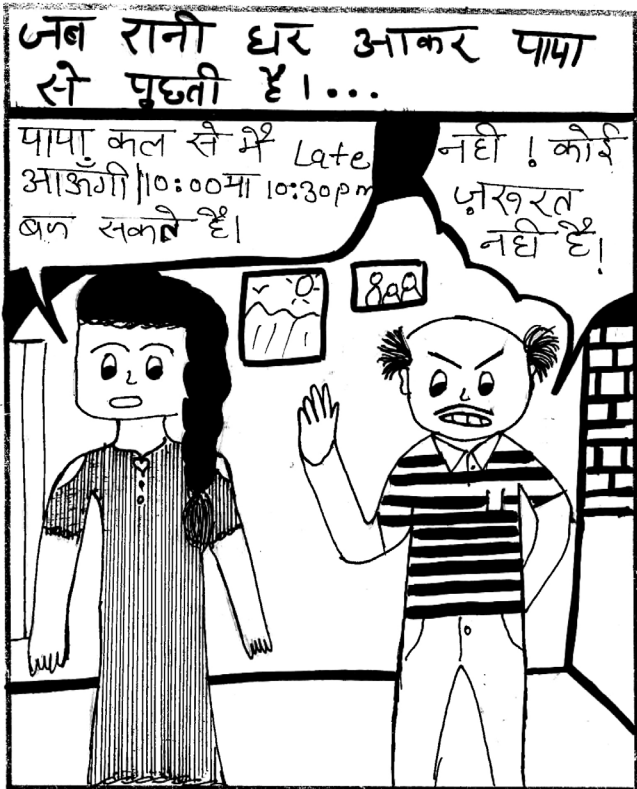 जब रानी घर आकर पापा
से पुछती है।...
पापा कल से मैं Late
आऊँगी 10:00या 10:30pm
बज सकते है।
नही ! कोई
ज़रूरत
नही है!